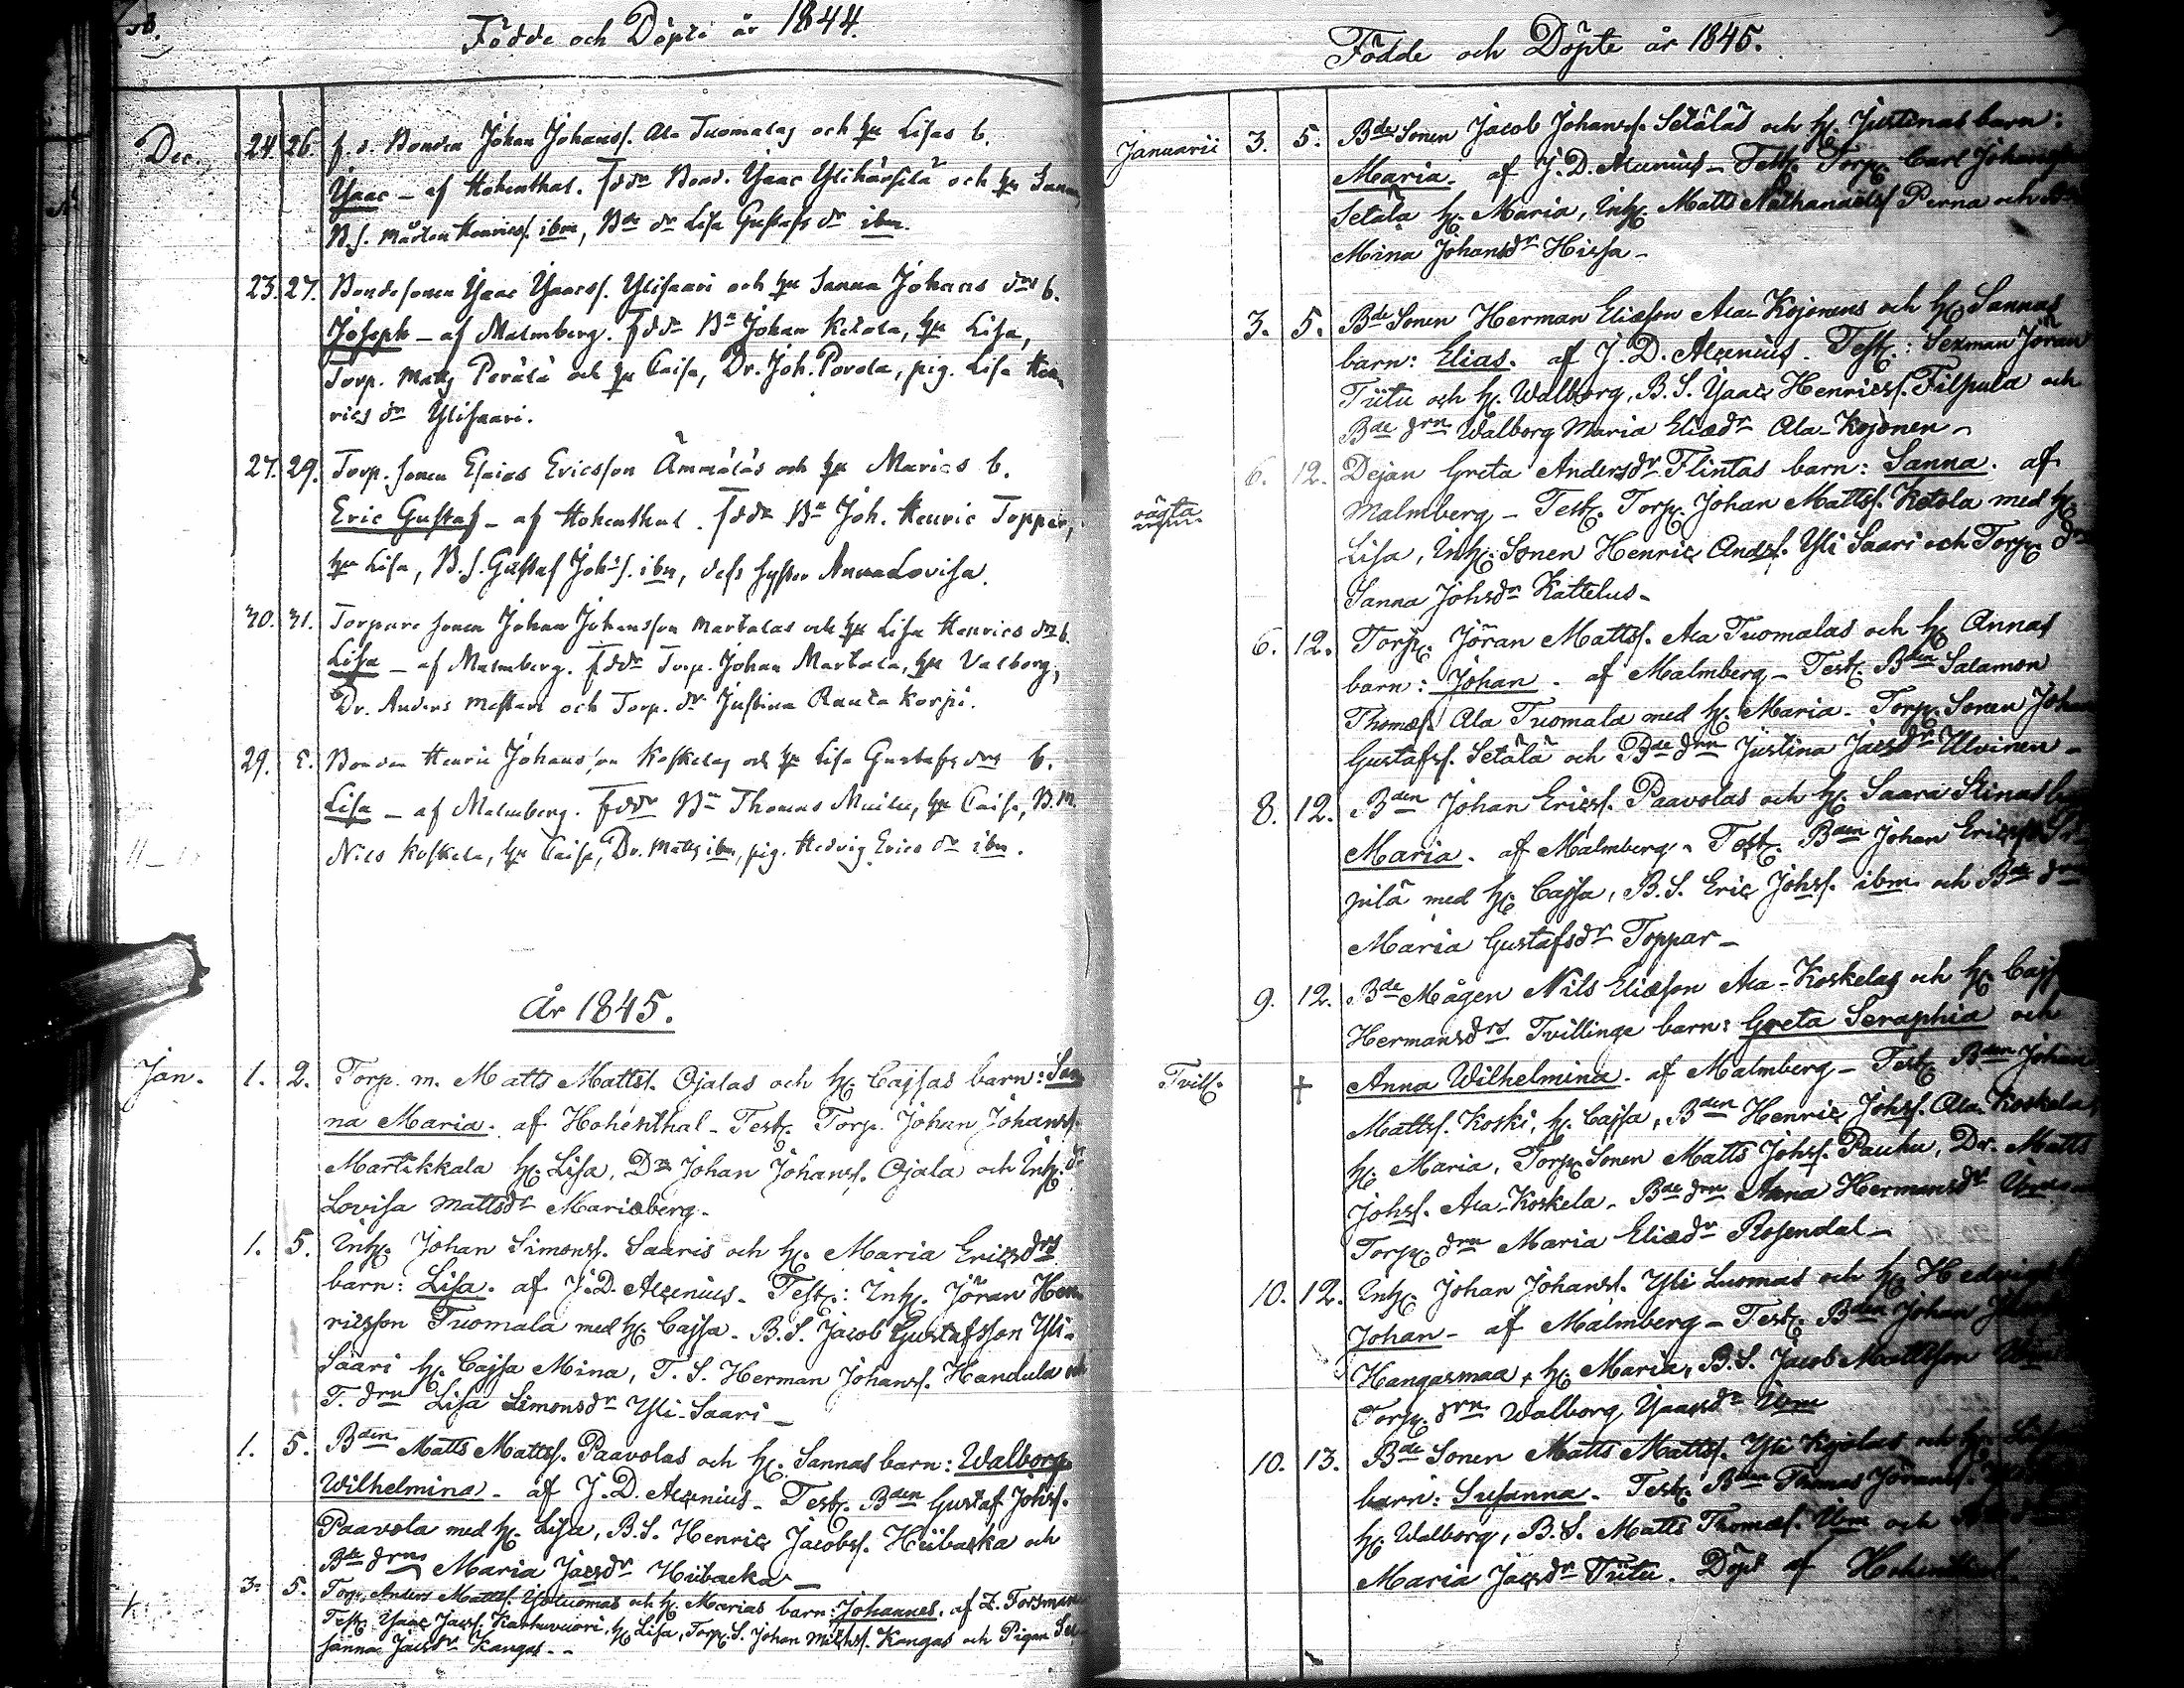 Födde och Döpte år 1844.
Dec. 24. 26. f. d. Bonden Johan Johanss. Ala Tuomalas och hu Lisas b.
Ysaac – af Hohenthal. fddr Bond. Ysaac Ylihärsilä och hu Sanna,
B. s. Mårten Henricss. ibm, Bde dr Lisa Gustafs dr ibm.
23. 27. Bondesonen Ysaac Ysaacss. Ylisaari och hu Sanna Johans drs b.
Joseph – af Malmberg. fddr Bn Johan Ketola, hu Lisa,
Torp. Matts Perälä och hu Caisa, Dr. Joh. Porola, pig. Lisa Hen-
rics dr Ylisaari.
27. 29. Torp. sonen Esaias Ericsson Ämmäläs och hu Marias b.
Eric Gustaf – af Hohenthal. fddr Bn Joh. Henric Toppar,
hu Lisa, B. s. Gustaf Johs s. ibm, dess syster Anna Lovisa.
30. 31. Torpare sonen Johan Johansson Martalas och hu Lisa Henrics drs b.
Lisa – af Malmberg. fddr Torp. Johan Martala, hu Valborg,
Dr. Anders Mestari och Torp. dr Justina Rauta Korpi.
29. Bonden Henric Johansson Koskelas och hu Lisa Gustafs drs b.
Lisa – af Malmberg. fddr Bn Thomas hu Caisa, B. M.
Nils Koskela, hu Caisa, Dr. Matts ibm, pig. Hedvig Erics dr ibm.
År 1845.
Jan. 1. 2. Torp. m. Matts Mattss. Ojalas och H. Cajsas barn: San
na Maria. af Hohenthal – Test. Torp. Johan Johanss.
Martikkala H. Lisa, Dr Johan Johanss. Ojala och Inh. dr
Lovisa Mattsdr Marieberg –
1. 5. Inh. Johan Simonss. Saaris och H. Maria Ericsdrs
barn: Lisa. af J. D. Alcenius – Test.: Inh. Jöran Hen
ricsson Tuomala med H. Cajsa – B. S. Jacob Gustafsson Yli-
Saari H. Cajsa Mina, T. S. Herman Johanss. Handula och
T. drn Lisa Simonsdr Yli-Saari –
1. 5. Bden Matts Mattss. Paavolas och H. Sannas barn: Walborg
Wilhelmina – af J. D. Alcenius – Test. Bden Gustaf Johss.
Paavola med H. Lisa, B. S. Henric Jacobss. Hiibacka och
Bde drn Maria Jacsdr Hiibacka –
3. 5. Torp. Anders Mattss. Yliluomas och H. Marias barn: Johannes. af Z. Forsman
Test. Ysaac Jacss. Karhuvuori, H. Lisa, Torp. S. Johan Michss. Kangas och Pigan Su
sanna Jacsdr Kangas. –
Födde och Döpte år 1845.
Januarii 3. 5. Bde Sonen Jacob Johanss. Setäläs och H. Justinas barn:
Maria. af J. D. Alcenius – Test. Torp. Carl Johans
Setälä H. Maria, Inh. Matts Nathanaelss Perna och
Mina Johansdr Hissa –
3. 5. Bde Sonen Herman Eliæson Ala-Kojonens och H. Sannas
barn: Elias. af J. D. Alcenius – Test.: Sexman Jöran
Tiitu och H. Walborg, B. S. Ysaac Henricss. Filpula och
Bde drn Walborg Maria Eliædr Ala-Kojonen –
oägta 6. 12. Dejan Greta Andersdr Flintas barn: Sanna. af
Malmberg – Test. Torp. Johan Mattss. Ketola med H.
Lisa, Inh. Sonen Henric Andss. Yli Saari och Torp. dr
Sanna Johsdr Kattelus –
6. 12. Torp. Jöran Mattss. Ala Tuomalas och H. Annas
barn: Johan. af Malmberg – Test. Bden Salamon
Thomæs. Ala Tuomala med H. Maria – Torp. Sonen Johan
Gustafss. Setälä och Bde drn Justina Jacsdr Ulvinen –
8. 12. Bden Johan Ericss. Paavolas och H. Saara Stinas
Maria. af Malmberg – Test. Bden Johan Ericss.
pilä med H. Cajsa, B. S. Eric Johss. ibm och Bde drn
Maria Gustafsdr Toppar –
9. 12. Bde Mågen Nils Eliæson Ala-Koskelas och H. Cajsa
Hermansdrs Tvillinge barn: Greta Seraphia och
Tvill. + Anna Wilhelmina. af Malmberg – Test. Bden Johan
Mattss. Koski, H. Cajsa, Bden Henric Johss. Ala-Koskela,
H. Maria, Torp. Sonen Matts Johss. Pauha, Dr. Matts
Johss. Ala-Koskela – Bde drn Anna Hermansdr
Torp. drn Maria Eliædr Rosendal –
10. 12. Inh. Johan Johanss. Yli Luomas och H. Hedvigs
Johan – af Malmberg – Test. Bden Johan
Kangasmaa, H. Maria, B. S. Jacob Mattsson
Torp. drn Walborg Ysaacsdr Ibm
10. 13. Bde Sonen Matts Mattss. Yli Kojolas och H. Lisas
barn: Susanna – Test. Bden Thomas Jöranss.
H. Walborg, B. S. Matts Thomæs. Ibm och
Maria Jacsdr Tiitu. Döpt af Hohenthal